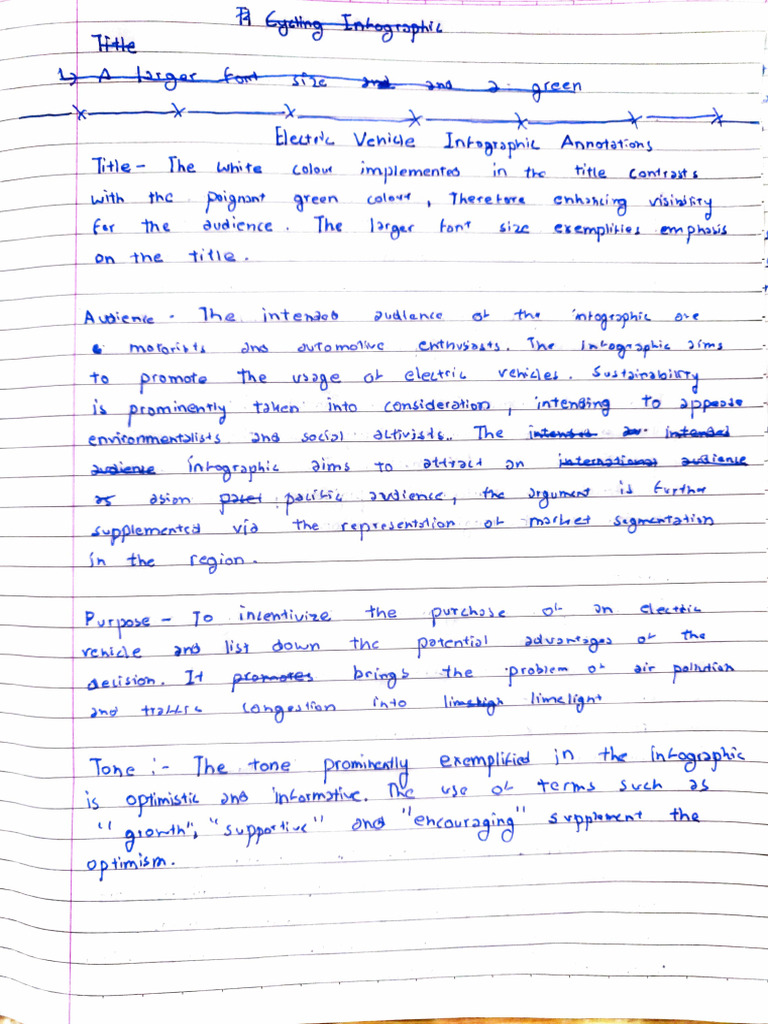 P) Cycling Infographic
Title
1) A larger font size and and a green
Electric Vehicle Infographic Annotations
Title - The white colour implemented in the title contrasts
with the poignant green colour, Therefore enhancing visibility
for the audience. The larger font size exemplifies emphasis
on the title.
Audience - The intended audience of the infographic are
motorists and automotive enthusiasts. The infographic aims
to promote the usage of electric vehicles. Sustainability
is prominently taken into consideration, intending to appease
environmentalists and social activists. The intended intended
audience infographic aims to attract an international audience
asian pacific audience, the argument is further
supplemented via the representation of market segmentation
in the region.
Purpose - To incentivize the purchase of an electric
vehicle and list down the potential advantages of the
decision. It promotes brings the problem of air pollution
and traffic congestion into limelight
Tone :- The tone prominently exemplified in the infographic
is optimistic and informative. The use of terms such as
"growth", "supportive" and "encouraging" supplement the
optimism.